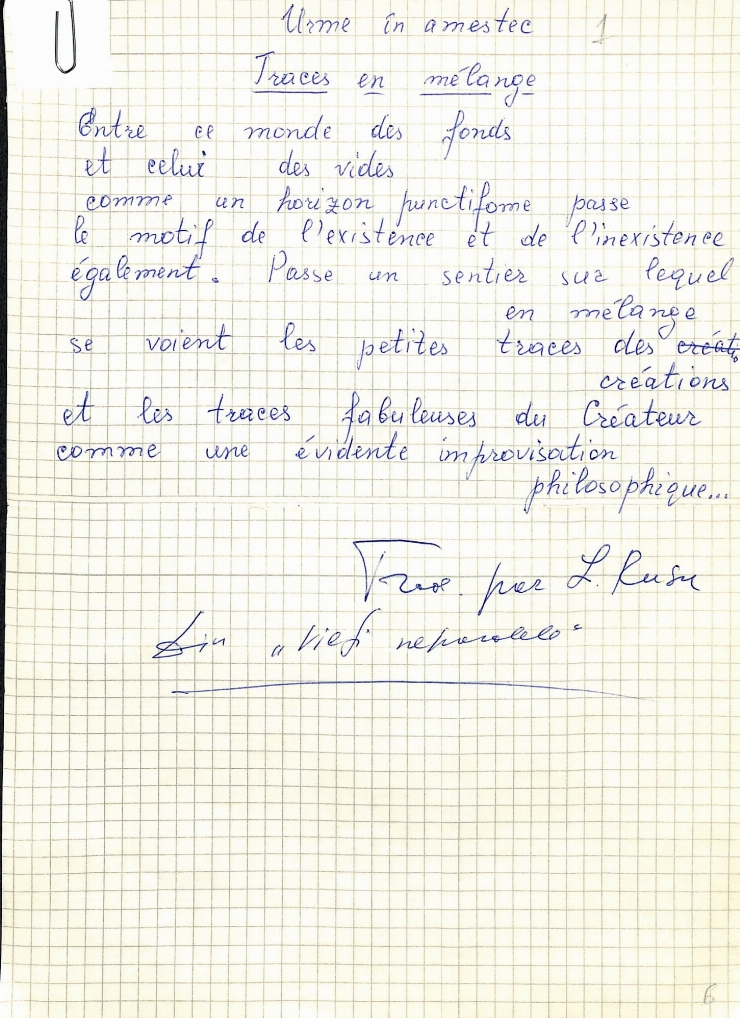 Urme în amestec 1
Traces en mélange
Entre ce monde des fonds
et celui des vides
comme un horizon punctifome passe
le motif de l'existence et de l'inexistence
également. Passe un sentier sur lequel
en mélange
se voient les petites traces des créat.
créations
et les traces fabuleuses du Créateur
comme une évidente improvisation
philosophique...
Trad. par L. Rusu
Din „Vieți neparalele“
6